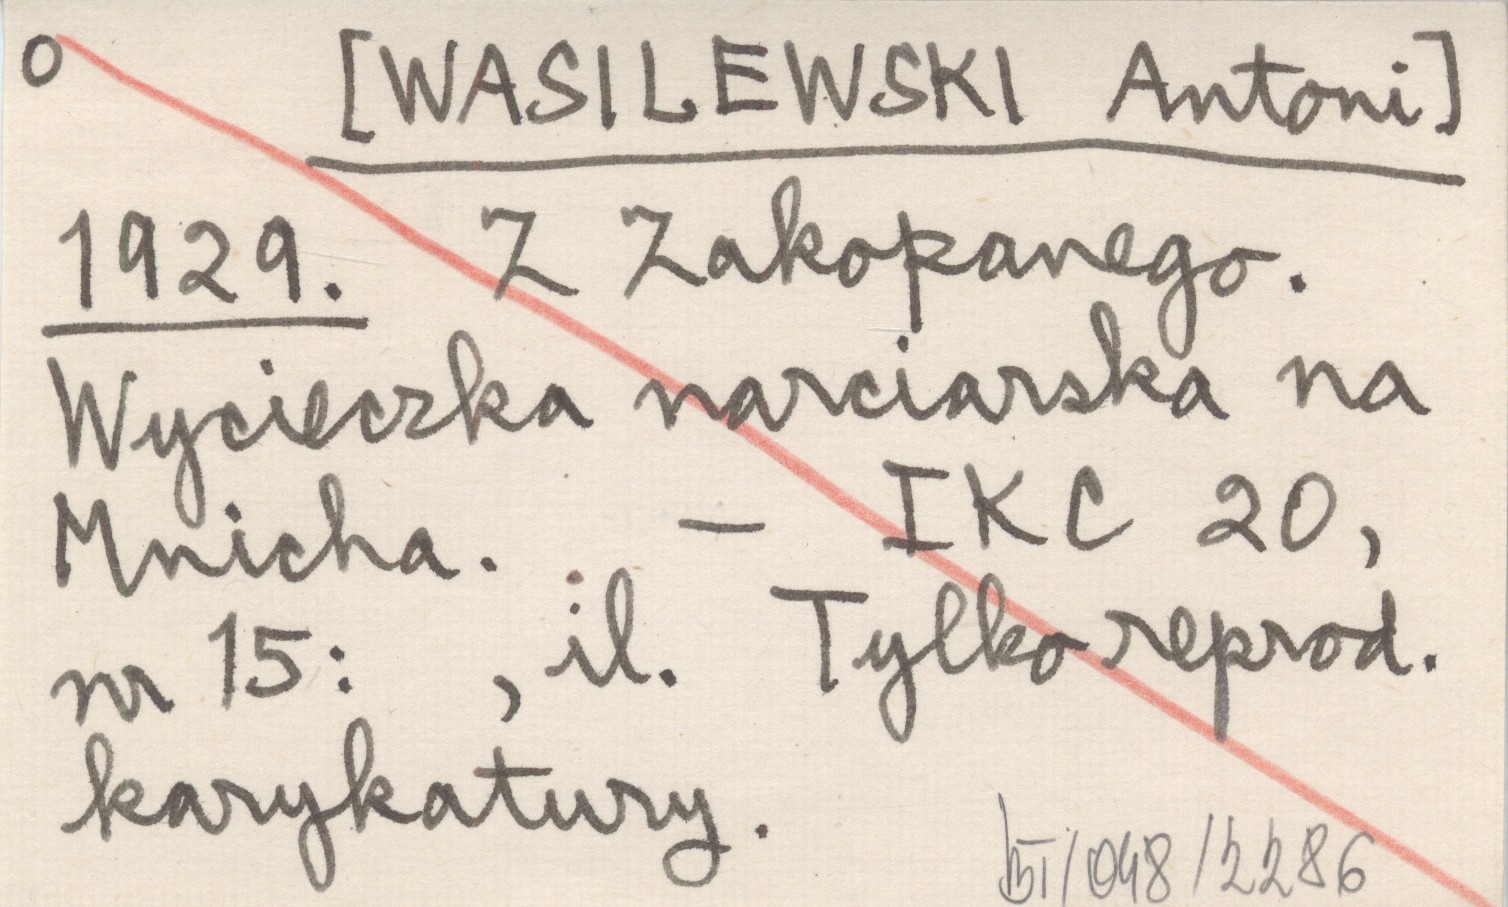 o [WASILEWSKI Antoni]
1929. Z Zakopanego.
Wycieczka narciarska na
Mnicha. - IKC 20,
nr 15: , il. - Tylko reprod.
karykatury.
/048/2286